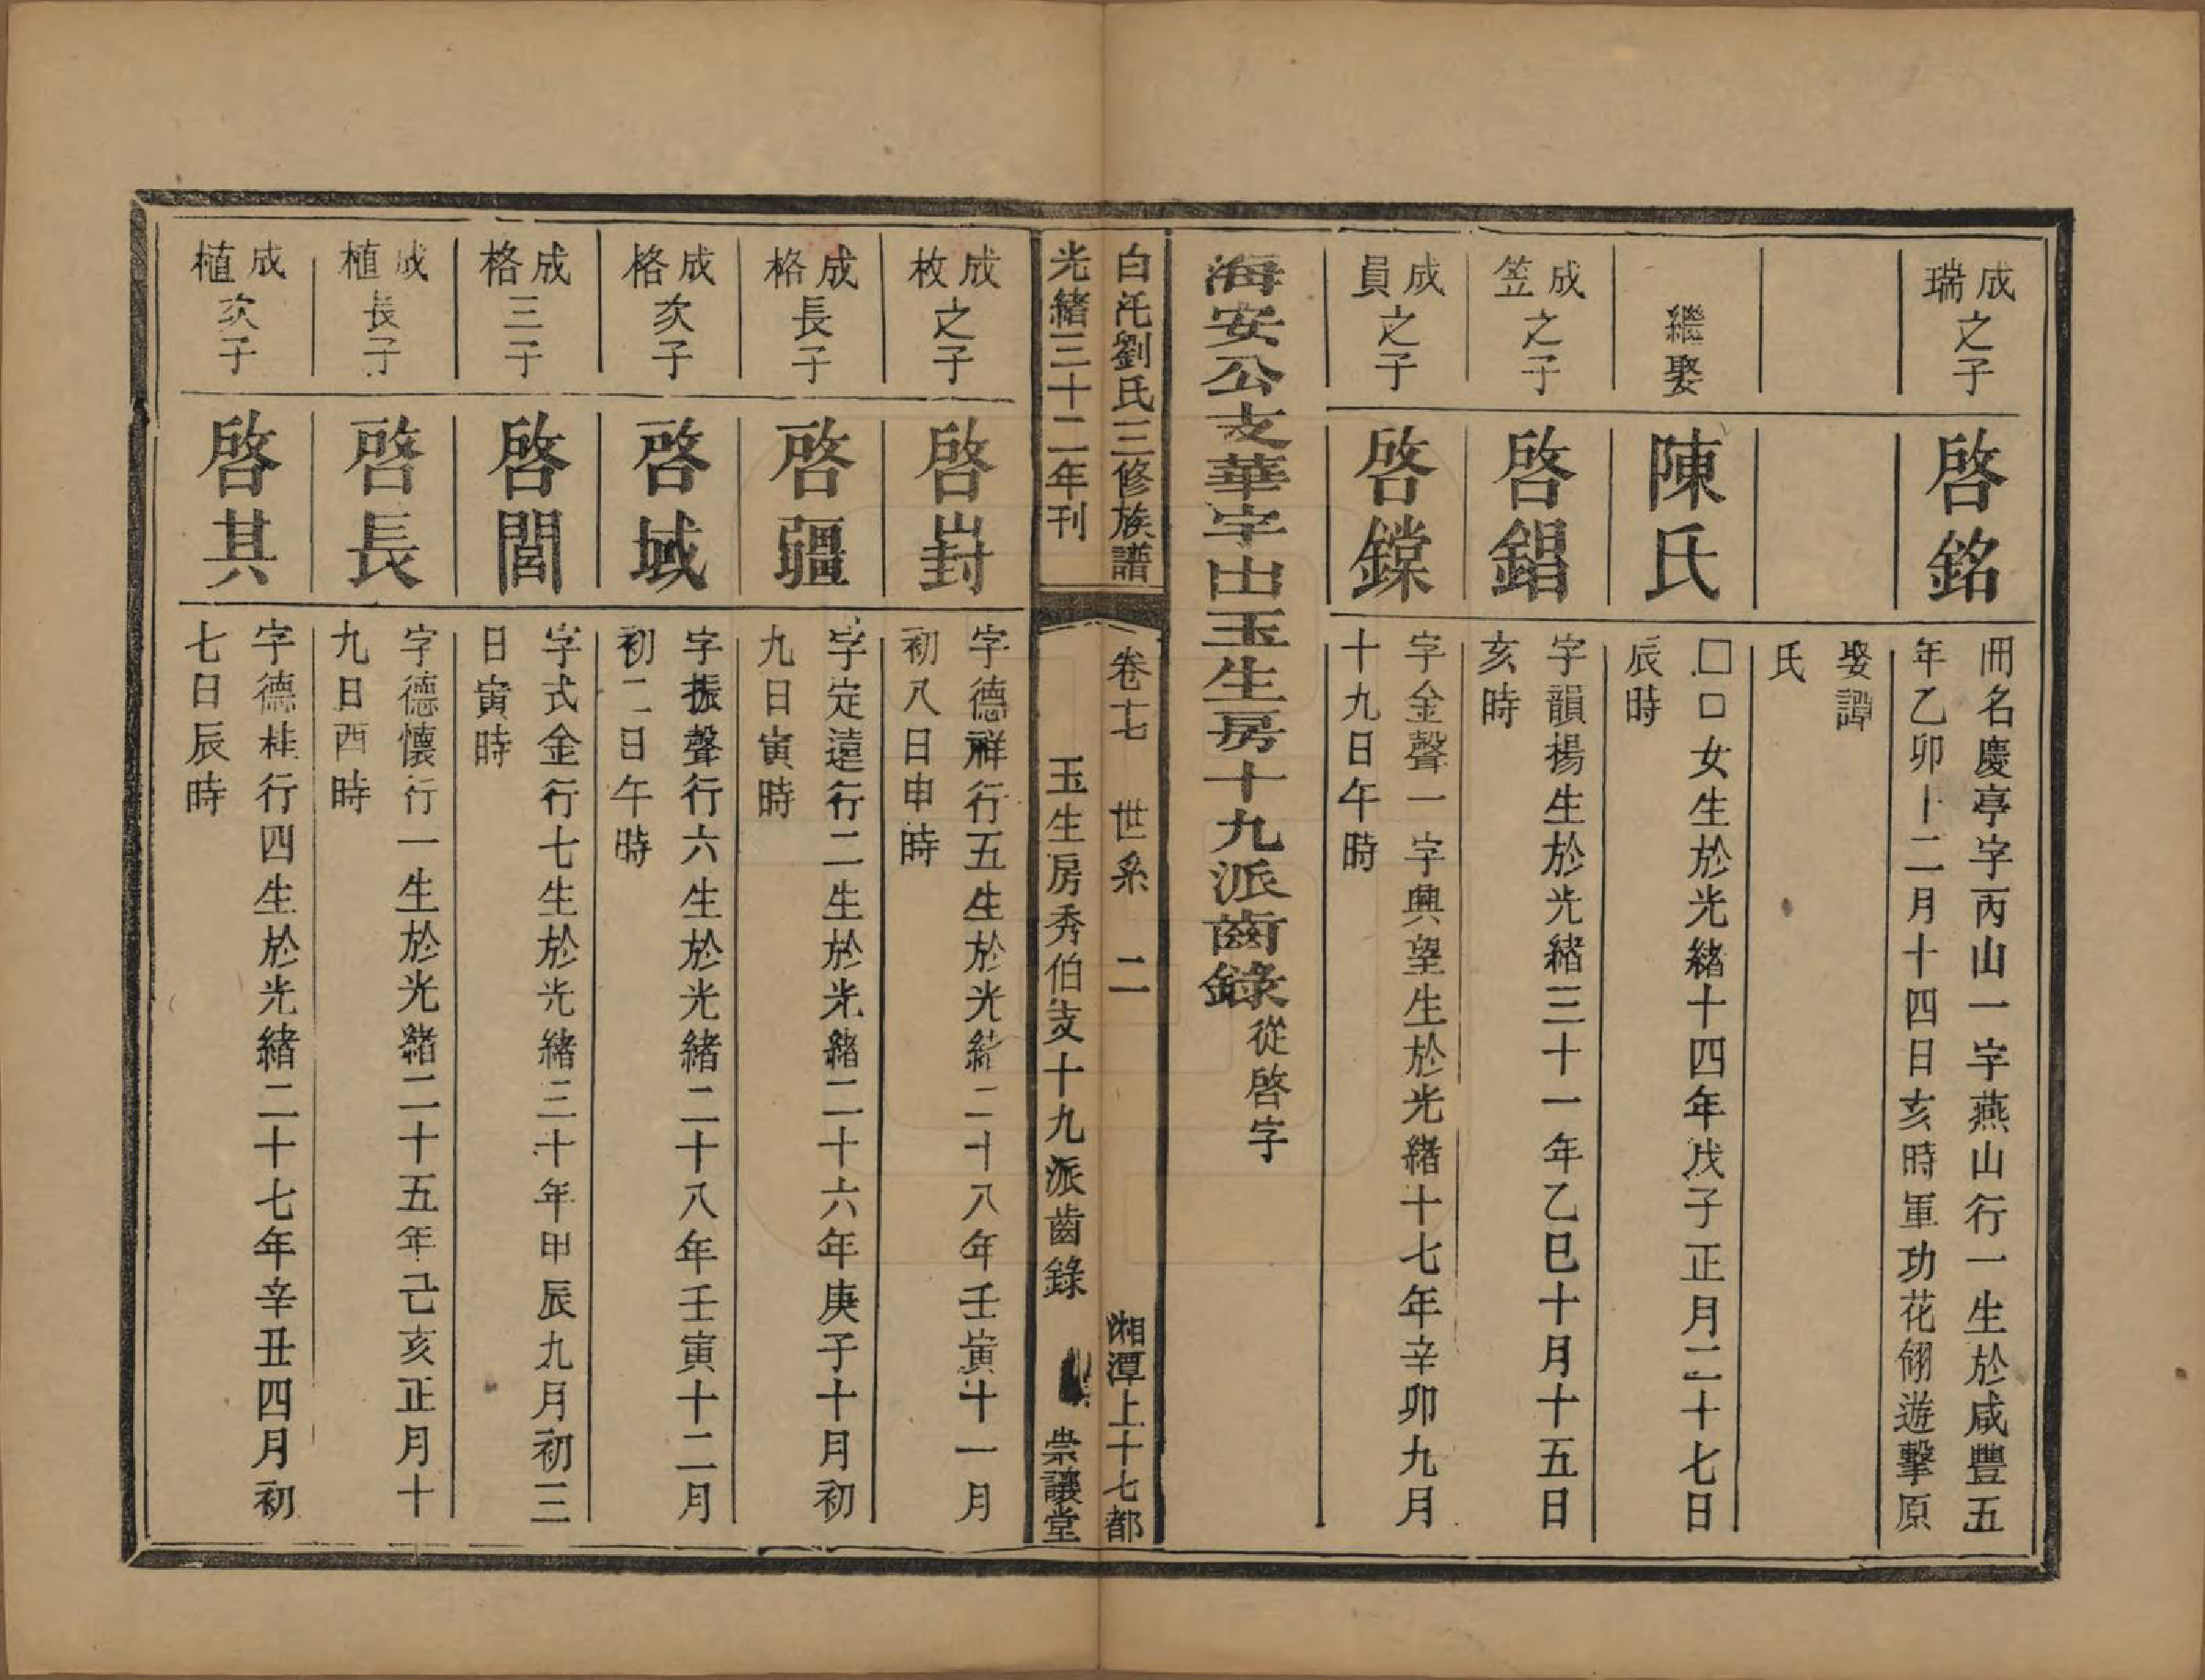 成瑞之子
啓銘
冊名慶亭字丙山一字燕山行一生於咸豐五
年乙卯十二月十四日亥時軍功花翎遊擊原
娶譚
氏
繼娶
陳氏
□□女生於光緒十四年戊子正月二十七日
辰時
成笠之子
啓錩
字韻楊生於光緒三十一年乙巳十月十五日
亥時
成員之子
啓鏿
字金聲一字興望生於光緒十七年辛卯九月
十九日午時
海安公支華字山玉生房十九派齒錄從啓字
白汑劉氏三修族譜 卷七 世系 二 湘潭上十七都
光緒三十二年刊 玉生房秀伯支十九派齒錄 崇讓堂
成枚之子
啓崶
字德祥行五生於光緒二十八年壬寅十一月
初八日申時
成格長子
啓疆
字定遠行二生於光緒二十六年庚子十月初
九日寅時
成格次子
啓域
字振聲行六生於光緒二十八年壬寅十二月
初二日午時
成格三子
啓閭
字式金行七生於光緒三十年甲辰九月初三
日寅時
成植長子
啓長
字德懷行一生於光緒二十五年己亥正月十
九日酉時
成植次子
啓其
字德桂行四生於光緒二十七年辛丑四月初
七日辰時